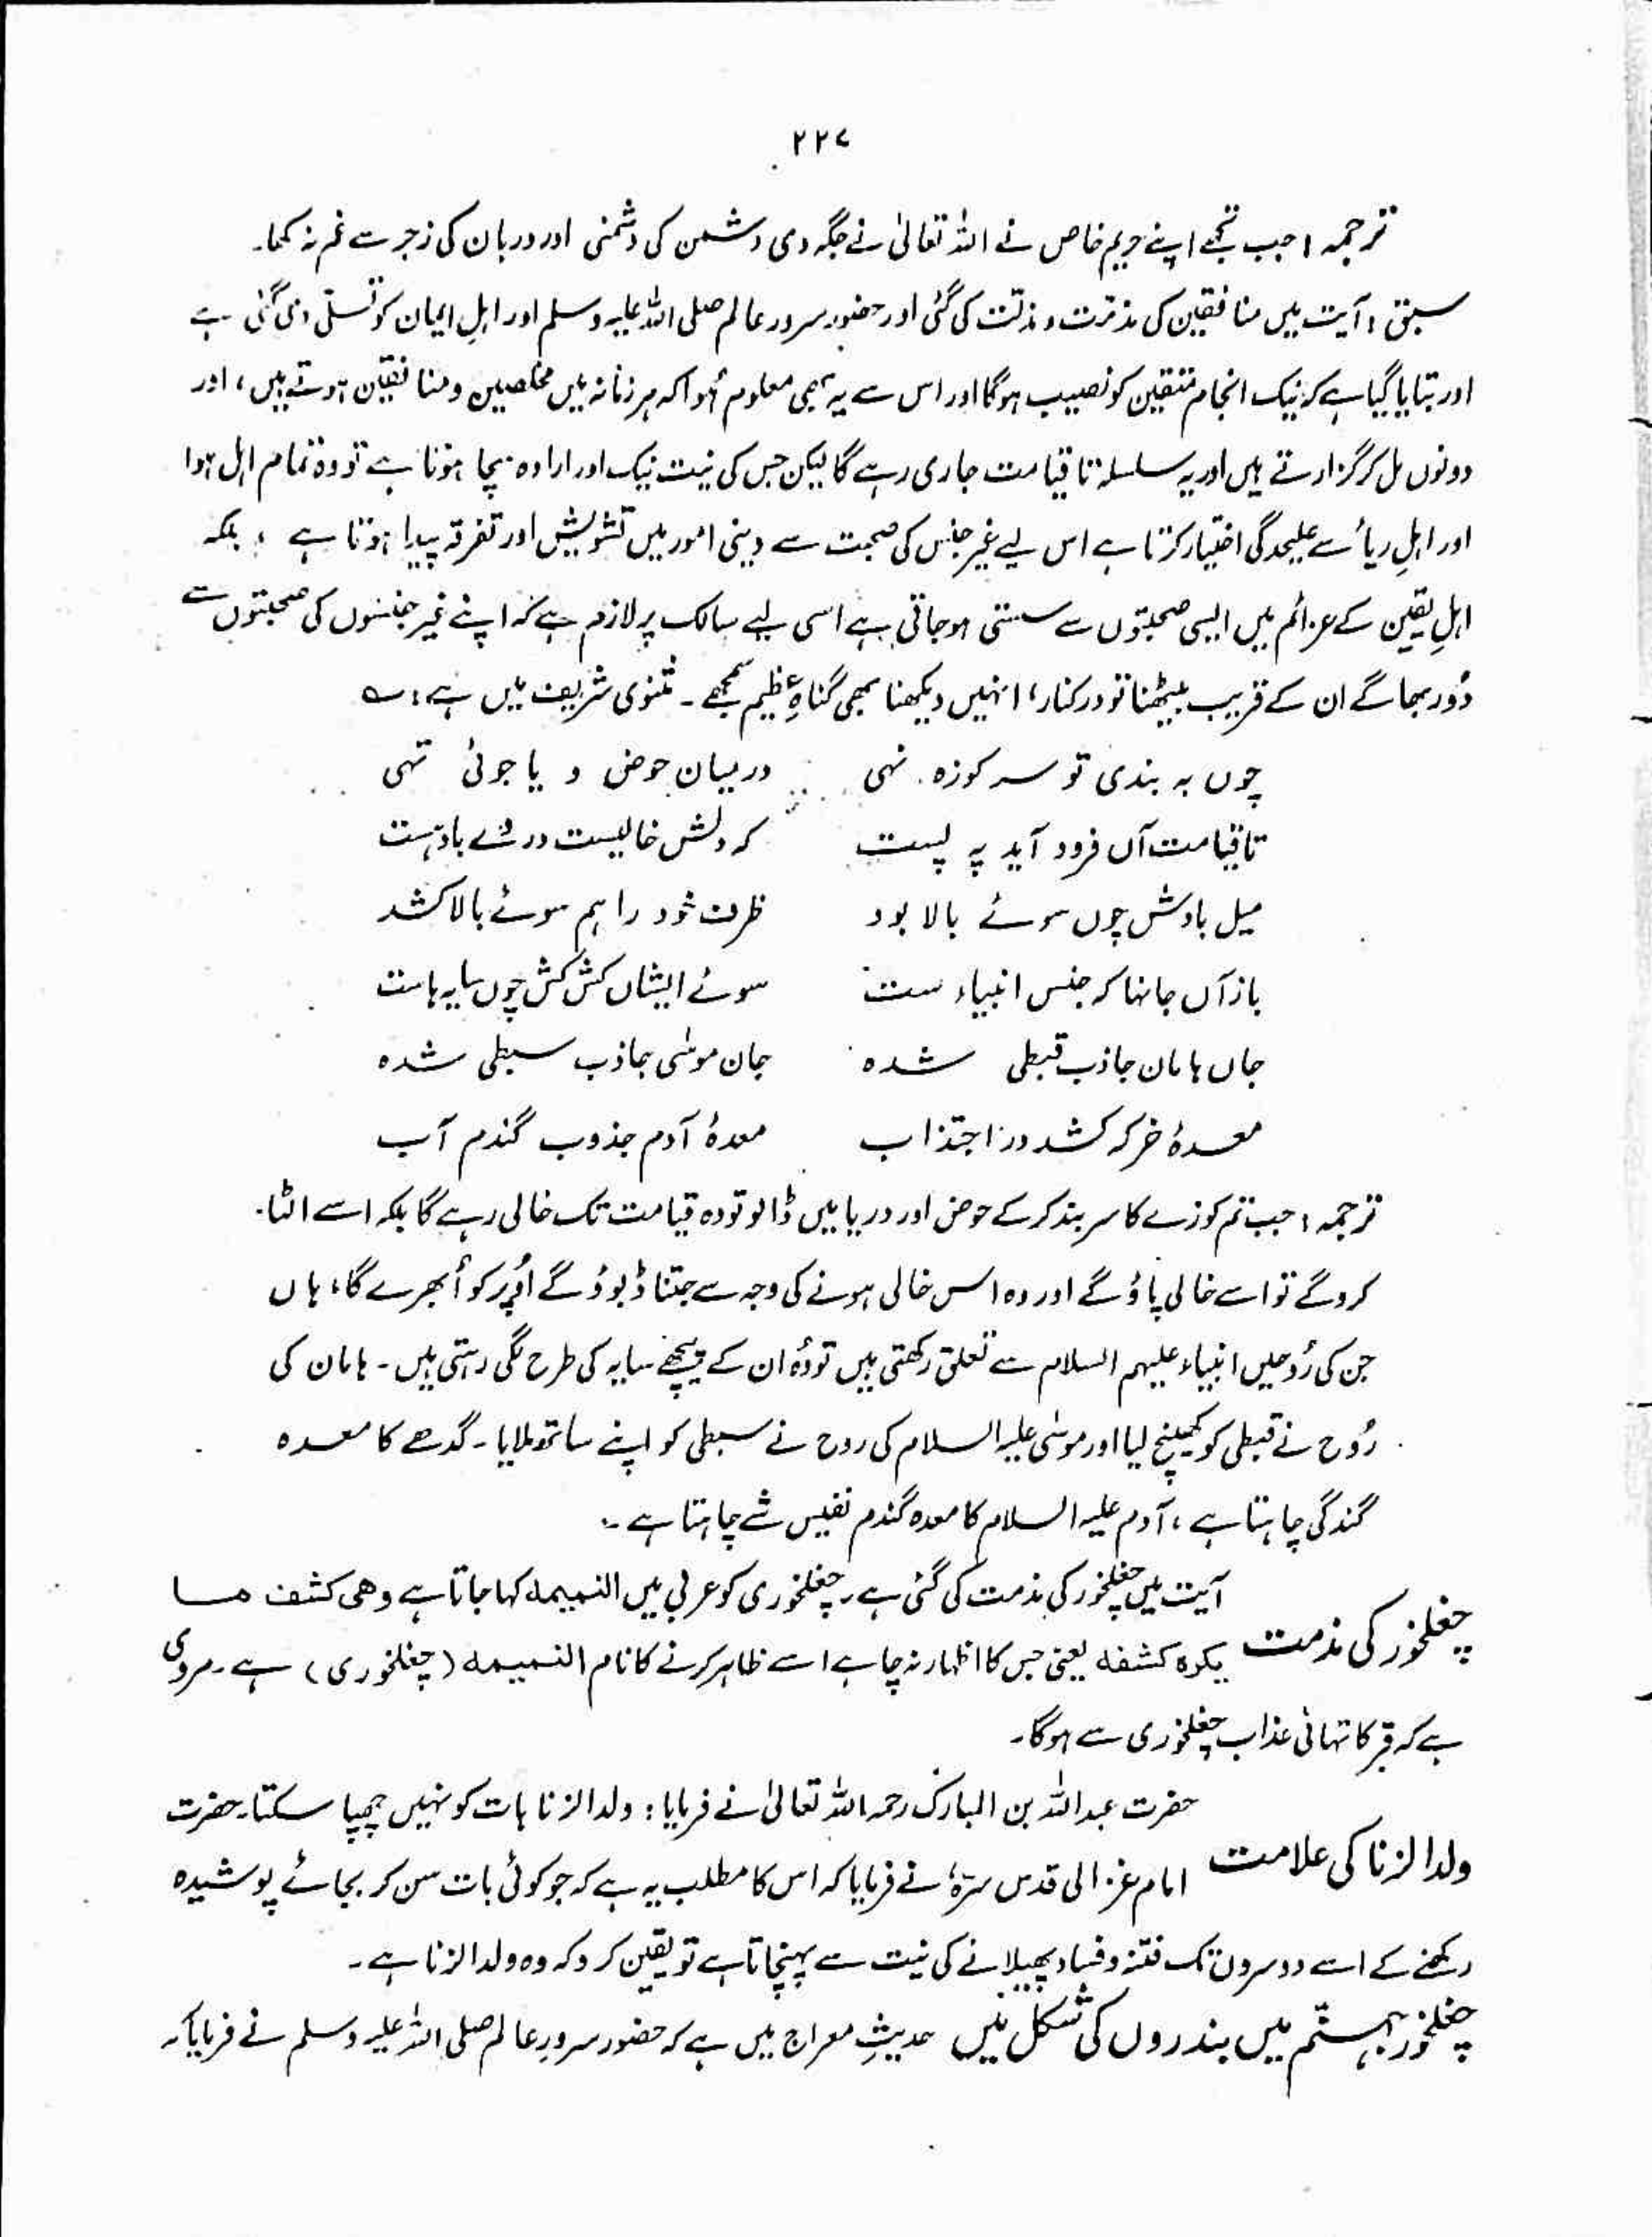 ۲۲۷
ترجمہ : جب تجھے اپنے حریم خاص نے اللہ تعالیٰ نے جگہ دی دشمن کی دشمنی اور دربان کی زجر سے غم نہ کھا۔
سبق : آیت میں منافقین کی مذمّت و مذلّت کی گئی اور حضور سرور عالم صلی اللہ علیہ وسلم اور اہلِ ایمان کو تسلّی دی گئی ہے
اور بتایا گیا ہے کہ نیک انجام متقین کو نصیب ہوگا اور اس سے یہ بھی معلوم ہُوا کہ ہر زمانہ میں مخلصین و منافقین ہوتے ہیں ، اور
دونوں مل کر گزارتے ہیں اور یہ سلسلہ تا قیامت جاری رہے گا لیکن جس کی نیت نیک اور ارادہ سچا ہوتا ہے تو وہ تمام اہل ہوا
اور اہلِ ریأ سے علیحدگی اختیار کرتا ہے اس لیے غیر جنس کی صحبت سے دینی امور میں تشویش اور تفرقہ پیدا ہوتا ہے ، بلکہ
اہلِ یقین کے عزائم میں ایسی صحبتوں سے سستی ہوجاتی ہے اسی لیے سالک پر لازم ہے کہ اپنے غیر جنسوں کی صحبتوں سے
دُور بھاگے ان کے قریب بیٹھنا تو درکنار ، انہیں دیکھنا بھی گناہِ عظیم سمجھے ۔ مثنوی شریف میں ہے : ؎
چوں بہ بندی تو سر کوزہ نہی درمیان حوض و یا جوئی تہی
تا قیامت آں فرود آید پہ پست کہ دلش خالیست در وے باد ہست
میل بادش چوں سوئے بالا بود ظرف خود را ہم سوئے بالا کشد
باز آں جانہا کہ جنس انبیاء ست سوئے ایشاں کش کش چوں سایہ ہاست
جاں ہامان جاذب قبطی شدہ جان موسٰی جاذب سبطی شدہ
معدۂ خر کہ کشد در اجتذاب معدۂ آدم جذوب گندم آب
ترجمہ : جب تم کوزے کا سر بند کر کے حوض اور دریا میں ڈالو تو وہ قیامت تک خالی رہے گا بلکہ اسے الٹا
کروگے تو اسے خالی پاؤ گے اور وہ اس خالی ہونے کی وجہ سے جتنا ڈبوؤ گے اُوپر کو اُبھرے گا ، ہاں
جن کی رُوحیں انبیاء علیہم السلام سے تعلق رکھتی ہیں تو وُہ ان کے پیچھے سایہ کی طرح لگی رہتی ہیں ۔ ہامان کی
رُوح نے قبطی کو کھینچ لیا اور موسٰی علیہ السلام کی روح نے سبطی کو اپنے ساتھ ملایا ۔ گدھے کا معدہ
گندگی چاہتا ہے ، آدم علیہ السلام کا معدہ گندم نفیس شے چاہتا ہے ۔
چغلخور کی مذمت
آیت میں چغلخور کی مذمت کی گئی ہے ۔ چغلخوری کو عربی میں النمیمہ کہا جاتا ہے وھی کشف ما
یکرہ کشفہ یعنی جس کا اظہار نہ چاہے اسے ظاہر کرنے کا نام النمیمہ (چغلخوری) ہے ۔ مروی
ہے کہ قبر کا تہائی عذاب چغلخوری سے ہوگا ۔
ولد الزنا کی علامت
حضرت عبداللہ بن المبارک رحمہ اللہ تعالیٰ نے فرمایا : ولد الزنا بات کو نہیں چھپا سکتا۔ حضرت
امام غزالی قدس سرّہٗ نے فرمایا کہ اس کا مطلب یہ ہے کہ جو کوئی بات سن کر بجائے پوشیدہ
رکھنے کے اسے دوسروں تک فتنہ و فساد پھیلانے کی نیت سے پہنچاتا ہے تو یقین کر و کہ وہ ولد الزنا ہے ۔
چغلخور جہنّم میں بندروں کی شکل میں حدیثِ معراج میں ہے کہ حضور سرورِ عالم صلی اللہ علیہ وسلم نے فرمایا کہ